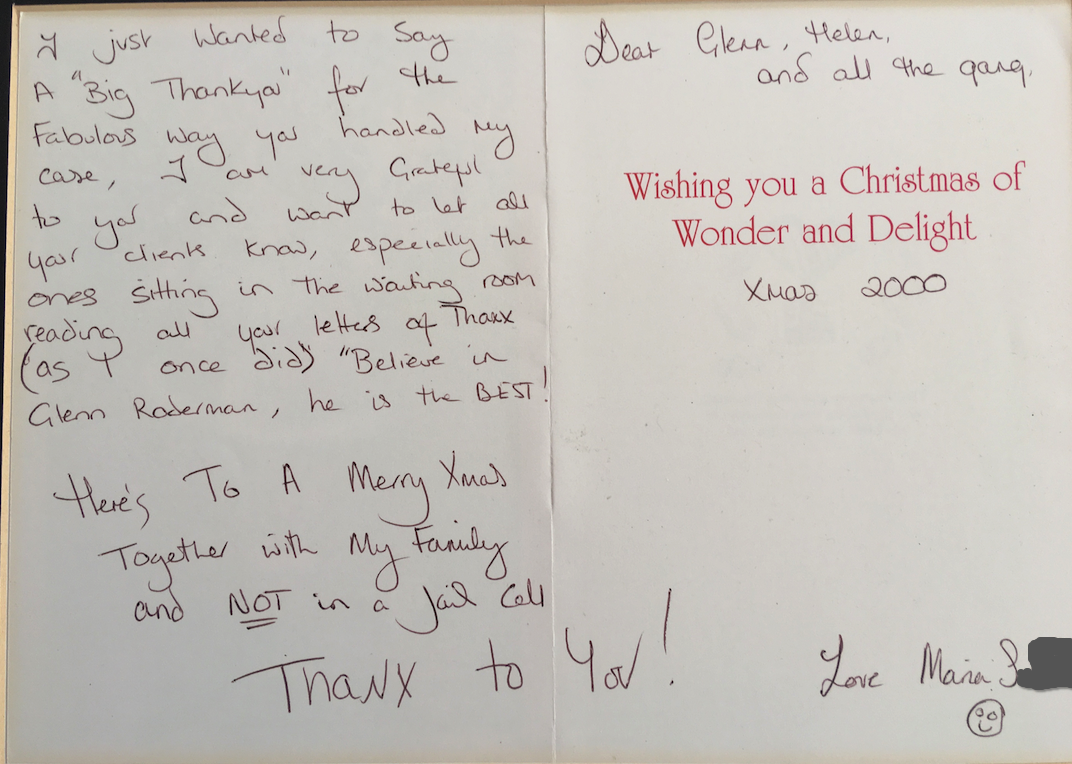 I just Wanted to Say
A "Big Thankyou" for the
Fabulous way you handled my
case, I am very Grateful
to you and want to let all
your clients know, especially the
ones sitting in the waiting room
reading all your letters of Thanx
(as I once did) "Believe in
Glenn Roderman, he is the BEST!
Here's To A Merry Xmas
Together with My Family
and NOT in a Jail Cell
Thanx to You!
Dear Glenn, Helen,
and all the gang.
Wishing you a Christmas of
Wonder and Delight
Xmas 2000
Love Maria S